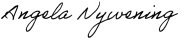 Angela Nywening